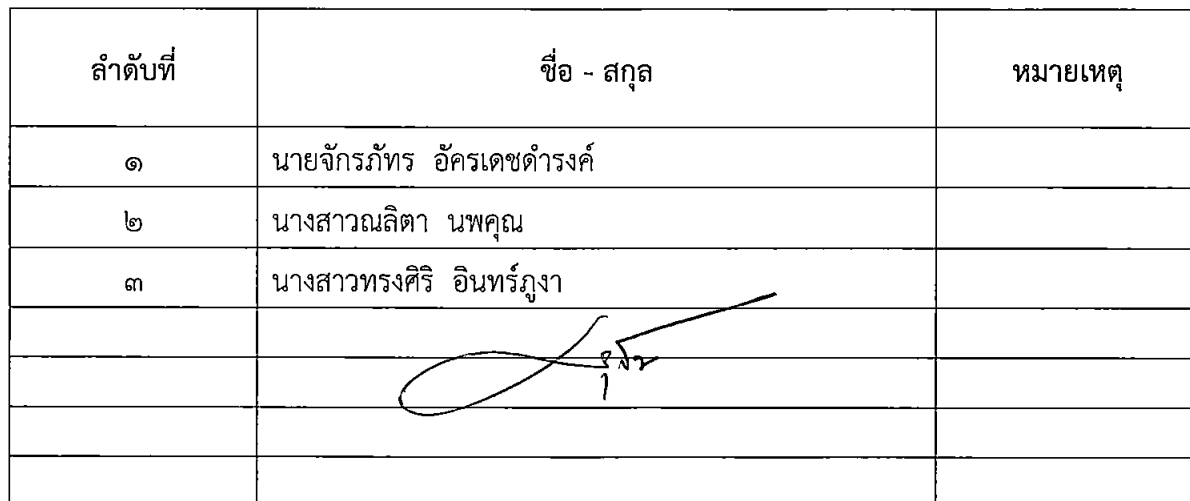 ลำดับที่ ชื่อ - สกุล หมายเหตุ
๑ นายจักรภัทร อัครเดชดำรงค์
๒ นางสาวณลิตา นพคุณ
๓ นางสาวทรงศิริ อินทร์ภูงา